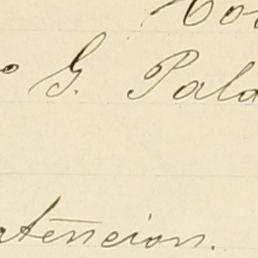 G. Pala
atencion.